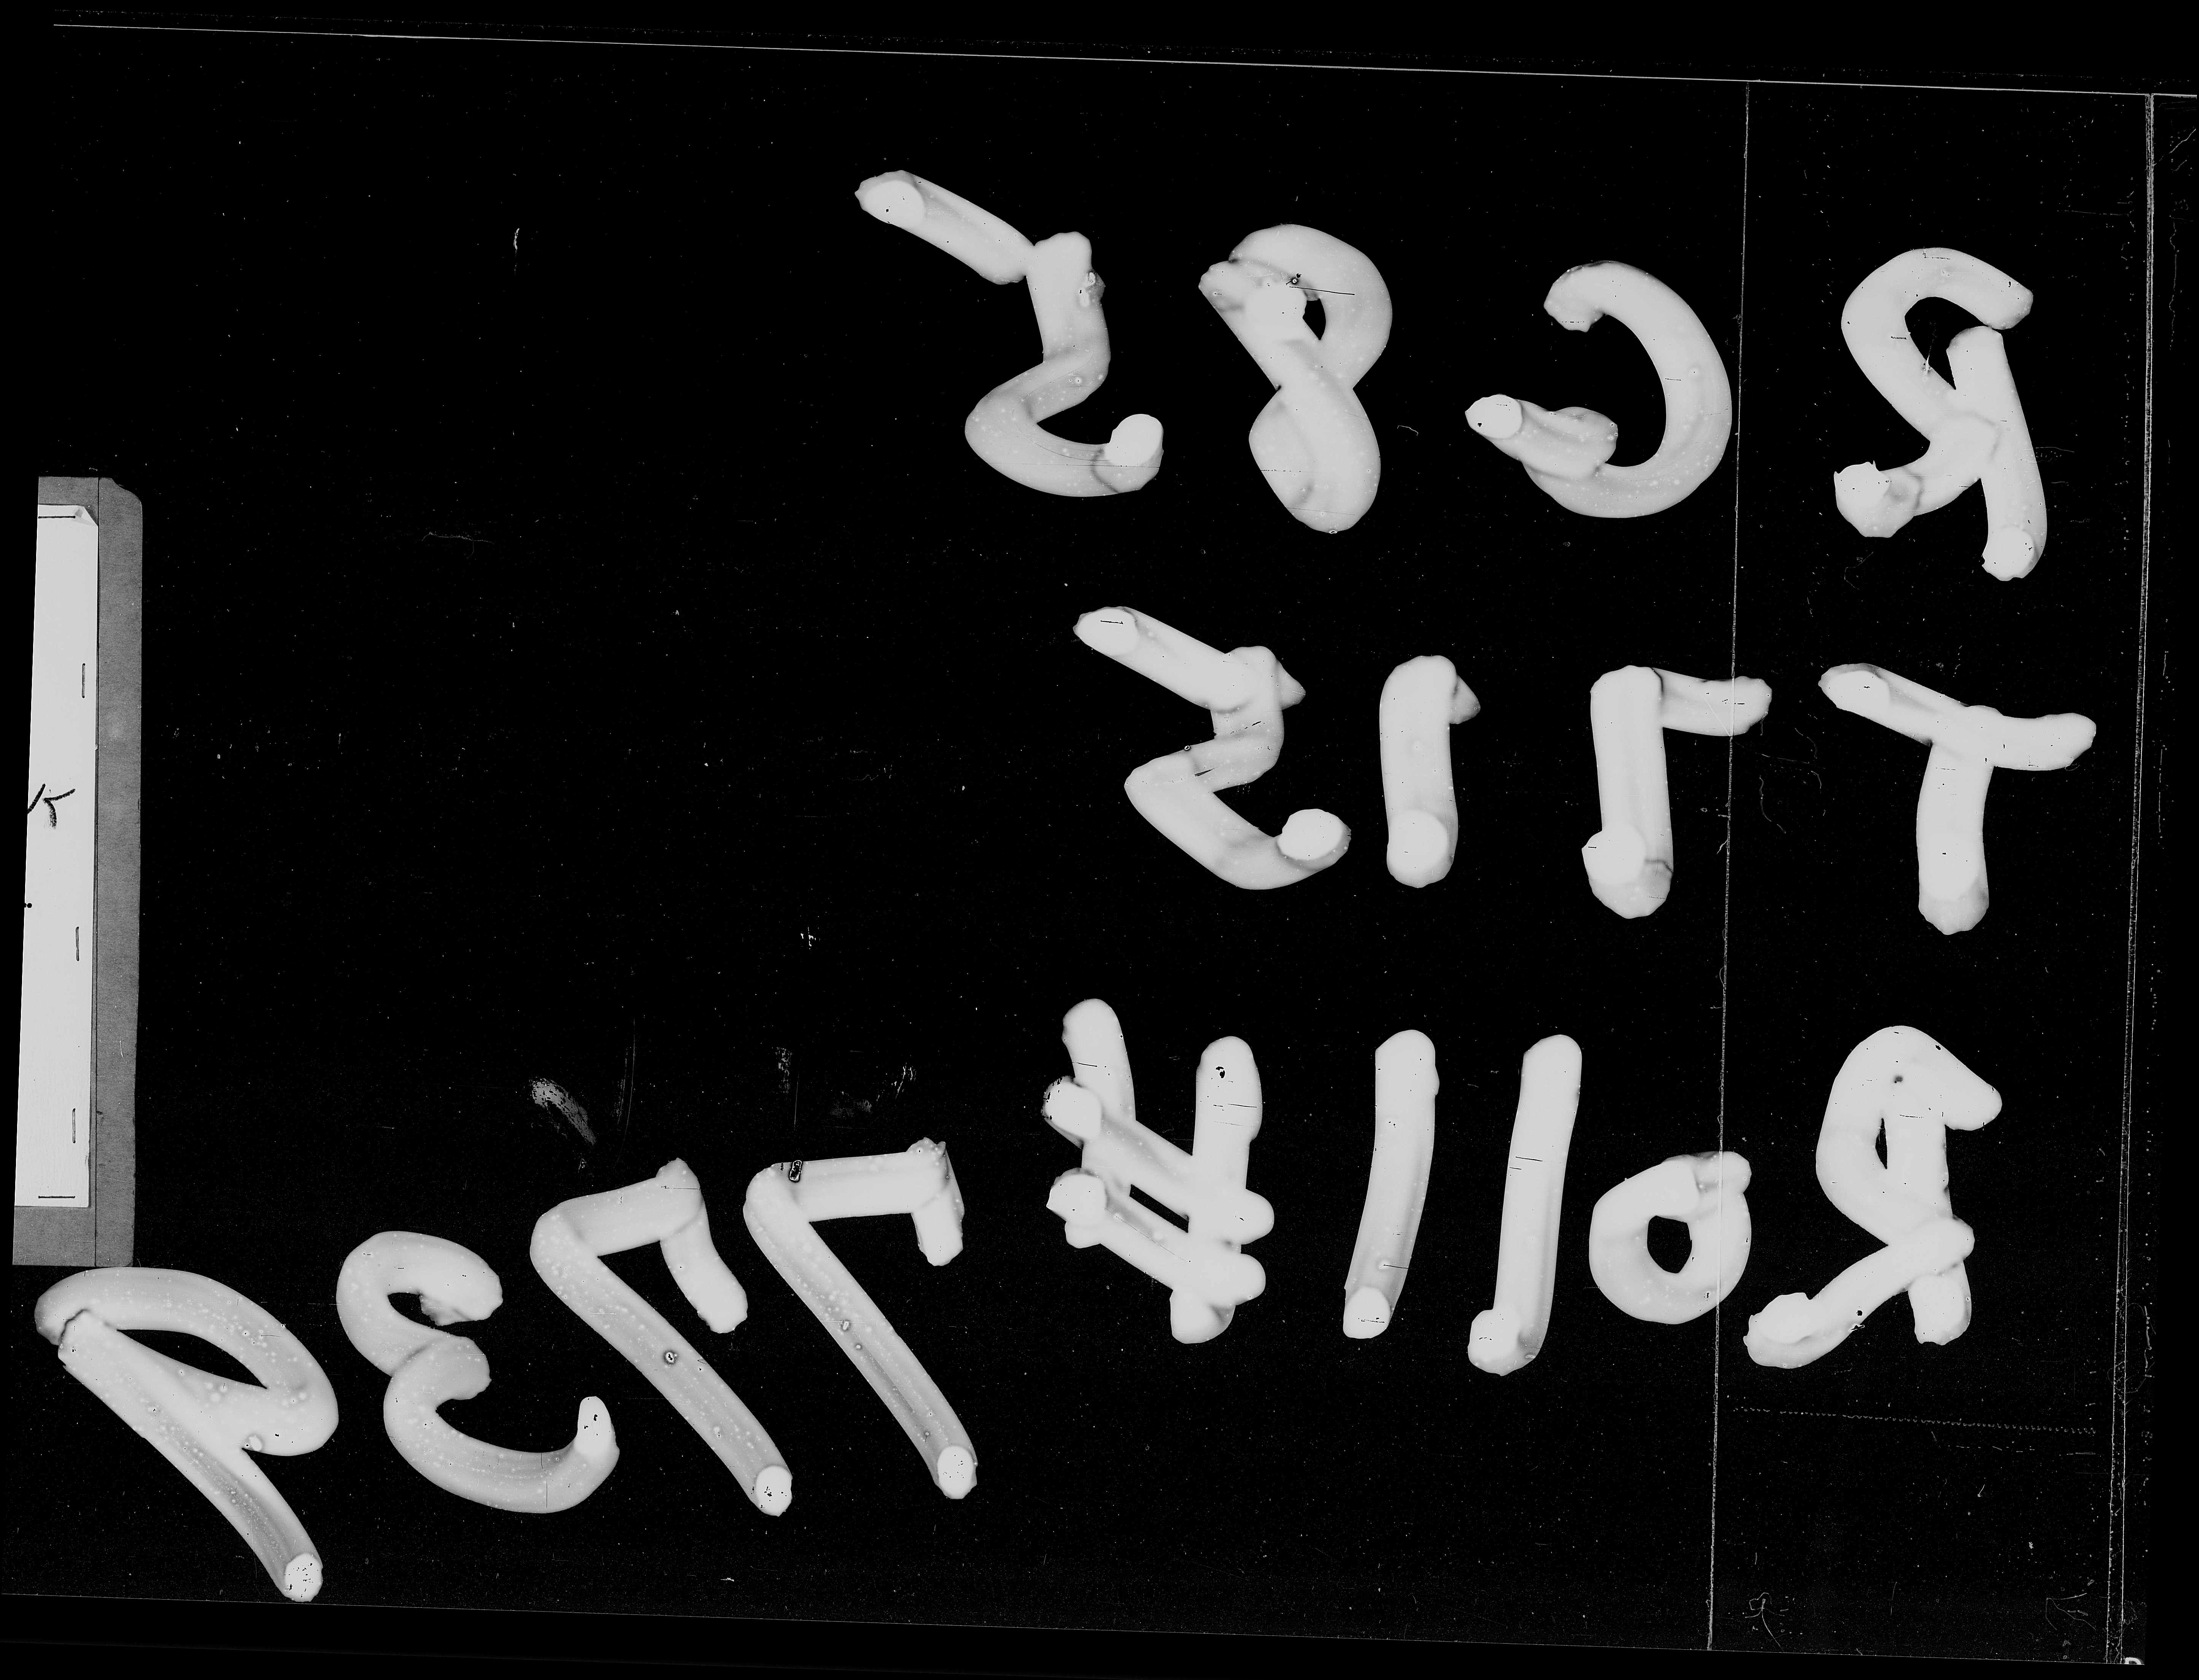 RG85
T715
Roll # 7739